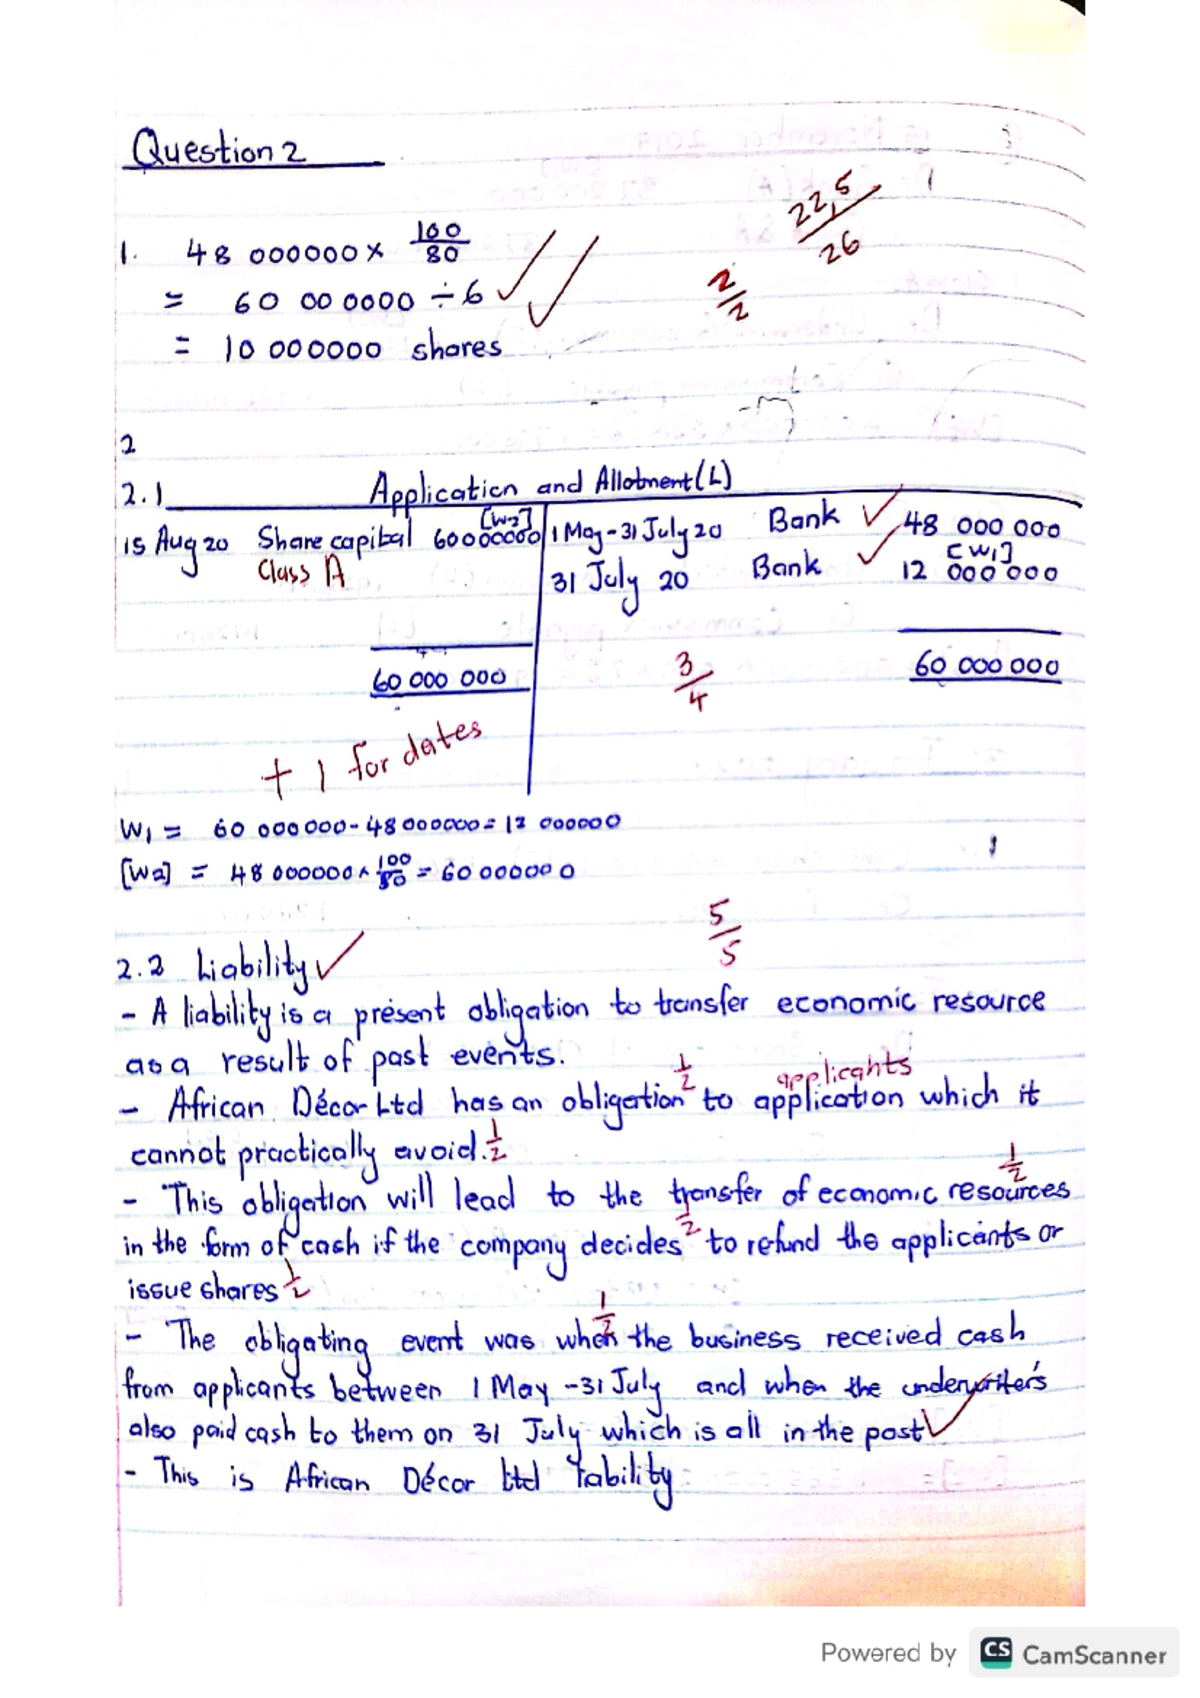 Question 2
22,5/26
1. 48 000000 × 100/80
= 60 00 0000 ÷ 6
2/2
= 10 000000 shares
2
2.1 Application and Allotment (L)
15 Aug 20 Share capital [W2] 60000000 1 May - 31 July 20 Bank 48 000 000
Class A 31 July 20 Bank [W1] 12 000 000
60 000 000 3/4 60 000 000
+ 1 for dates
W1 = 60 000 000 - 48 000000 = 12 000000
[W2] = 48 000000 × 100/80 = 60 000000
5/5
2.2 Liability
- A liability is a present obligation to transfer economic resource
as a result of past events.
applicants
- African Décor Ltd has an obligation 1/2 to application which it
cannot practically avoid. 1/2
- This obligation will lead to the transfer of economic resources 1/2
in the form of cash if the company decides 1/2 to refund the applicants or
issue shares 1/2
- The obligating event was when 1/2 the business received cash
from applicants between 1 May - 31 July and when the underwriter's
also paid cash to them on 31 July which is all in the past
- This is African Décor Ltd liability
Powered by CS CamScanner